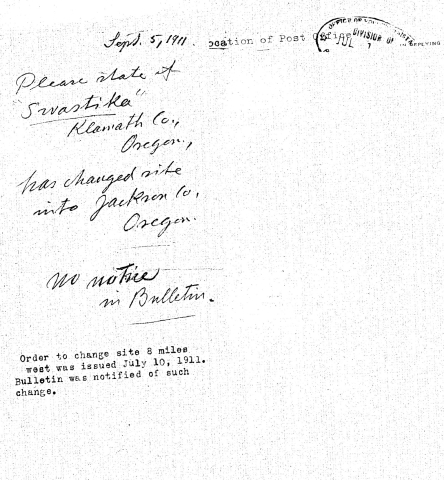 Sept. 5, 1911. ocation of Post Office
OFFICE OF
DIVISION OF
JUL
IN REPLYING
Please state if
"Swastika"
Klamath Co.,
Oregon.,
has changed site
into Jackson Co,
Oregon.
No notice
in Bulletin.
Order to change site 8 miles
west was issued July 10, 1911.
Bulletin was notified of such
change.